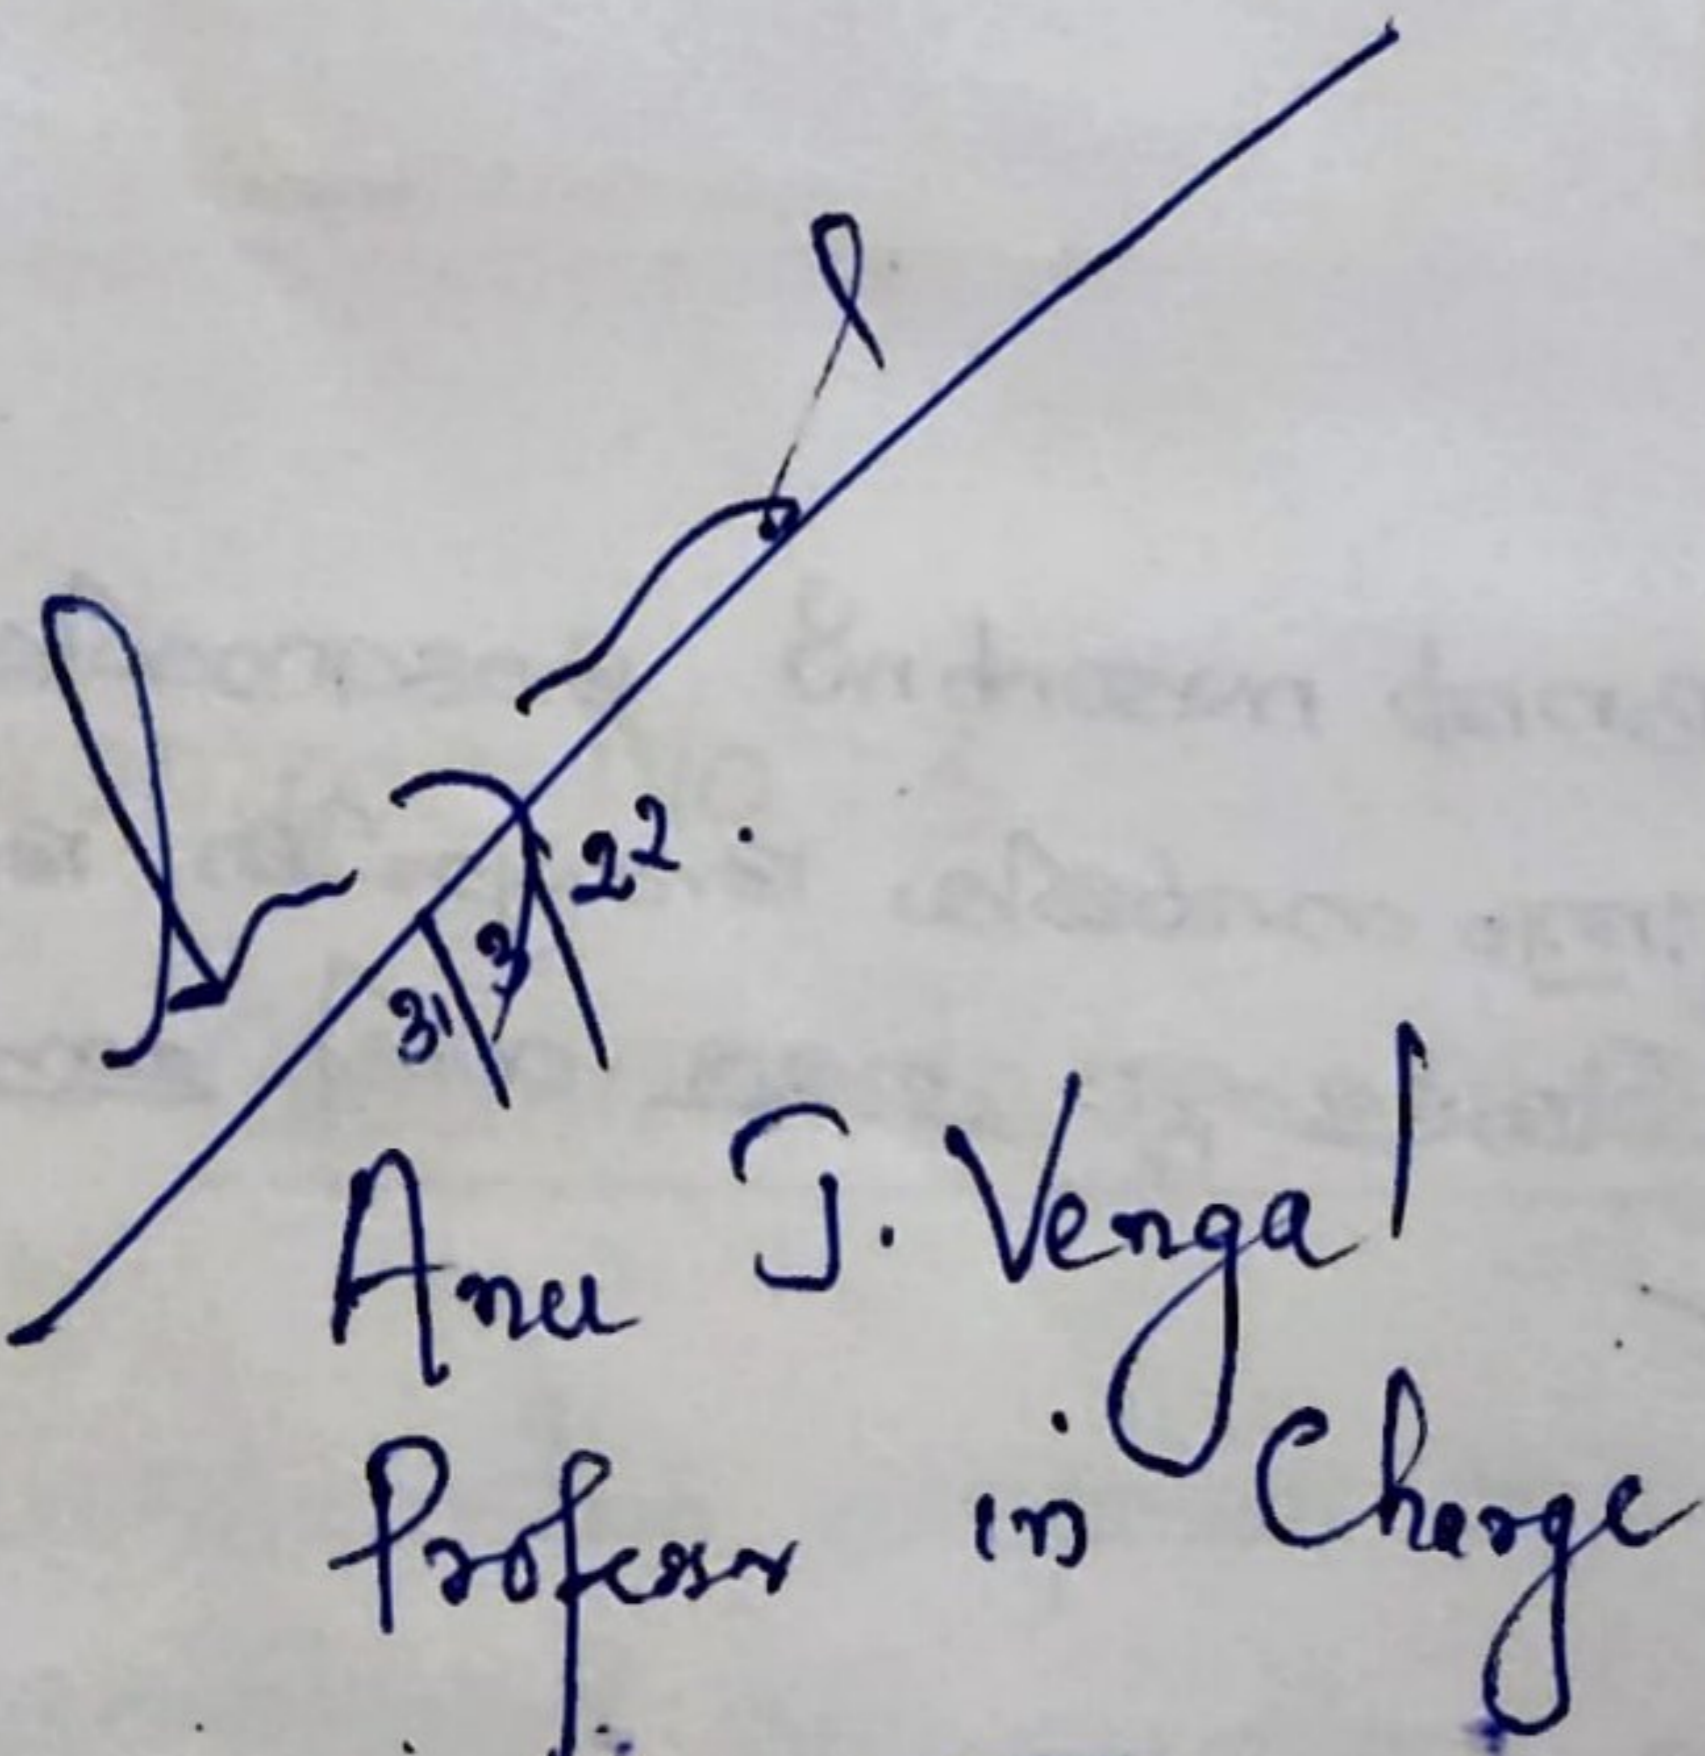 31/3/22.
Anu J. Vengal
Professor in Charge